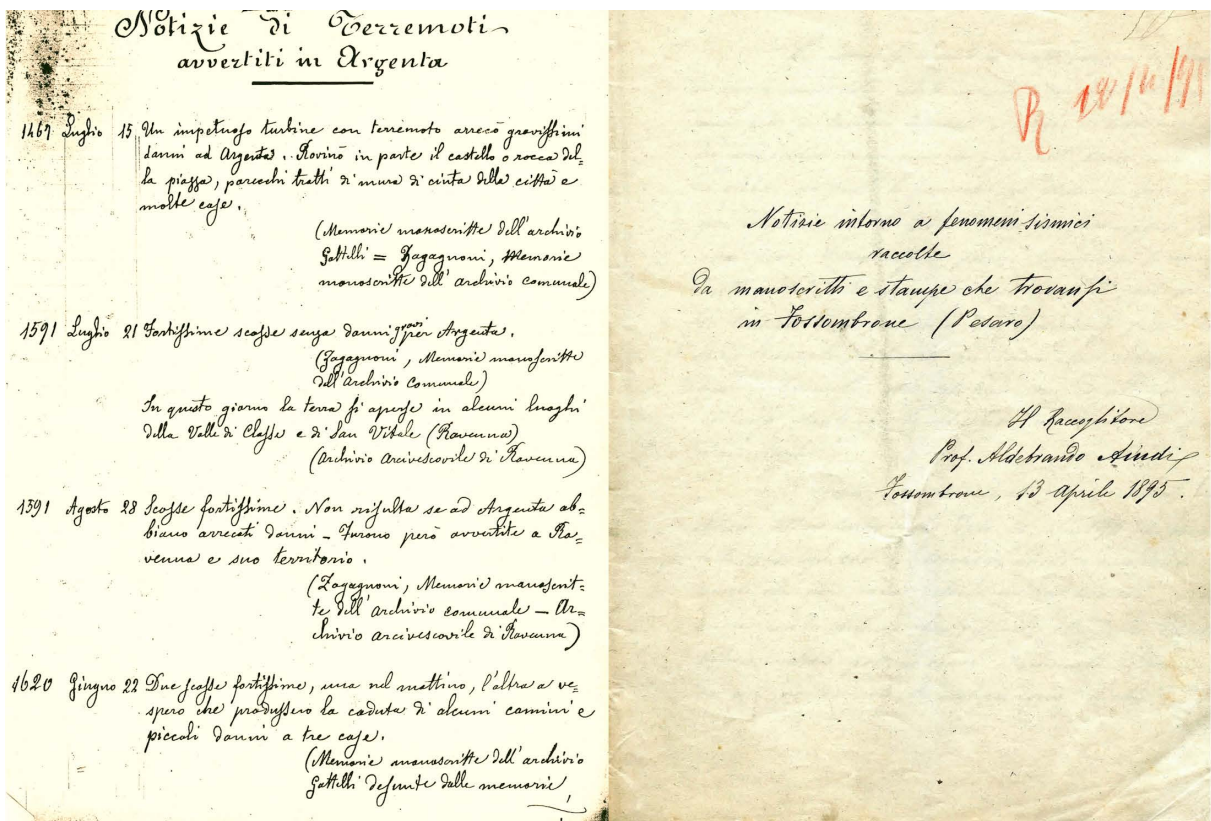 Notizie di Terremoti
avvertiti in Argenta
1467 Luglio 15 Un impetuoso turbine con terremoto arrecò gravissimi
danni ad Argenta. Rovinò in parte il castello o rocca del=
la piazza, parecchi tratti di mura di cinta della città e
molte case.
(Memorie manoscritte dell'archivio
Gattelli = Zagagnoni, Memorie
manoscritte dell'archivio comunale)
1591 Luglio 21 Fortissime scosse senza danni gravi per Argenta.
(Zagagnoni, Memorie manoscritte
dell'Archivio Comunale)
In questo giorno la terra si aperse in alcuni luoghi
della Valle di Classe e di San Vitale (Ravenna)
(Archivio Arcivescovile di Ravenna)
1591 Agosto 28 Scosse fortissime. Non risulta se ad Argenta ab=
biano arrecati danni – Furono però avvertite a Ra=
venna e suo territorio.
(Zagagnoni, Memorie manoscrit=
te dell'archivio comunale – Ar=
chivio arcivescovile di Ravenna)
1620 Giugno 22 Due scosse fortissime, una nel mattino, l'altra a ve=
spero che produssero la caduta di alcuni camini e
piccoli danni a tre case.
(Memorie manoscritte dell'archivio
Gattelli desunte dalle memorie
R
Notizie intorno a fenomeni sismici
raccolte
da manoscritti e stampe che trovansi
in Fossombrone (Pesaro)
Il Raccoglitore
Prof. Aldebrando
Fossombrone, 13 Aprile 1895.